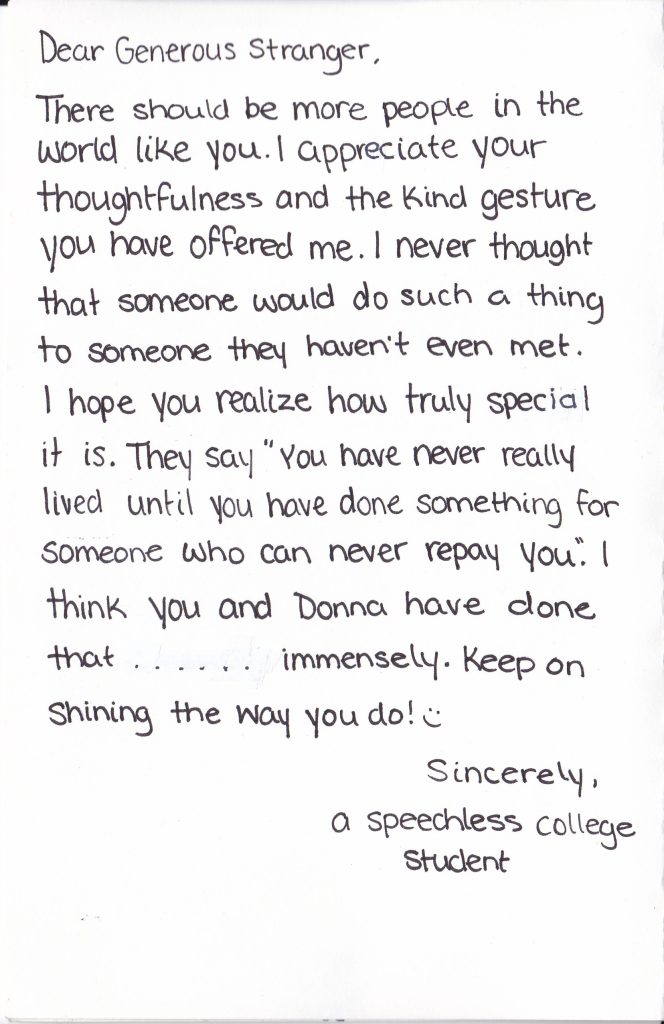 Dear Generous Stranger,
There should be more people in the
world like you. I appreciate your
thoughtfulness and the kind gesture
you have offered me. I never thought
that someone would do such a thing
to someone they haven't even met.
I hope you realize how truly special
it is. They say "You have never really
lived until you have done something for
someone who can never repay you". I
think you and Donna have done
that ...... immensely. Keep on
shining the way you do! :)
Sincerely,
a speechless college
student